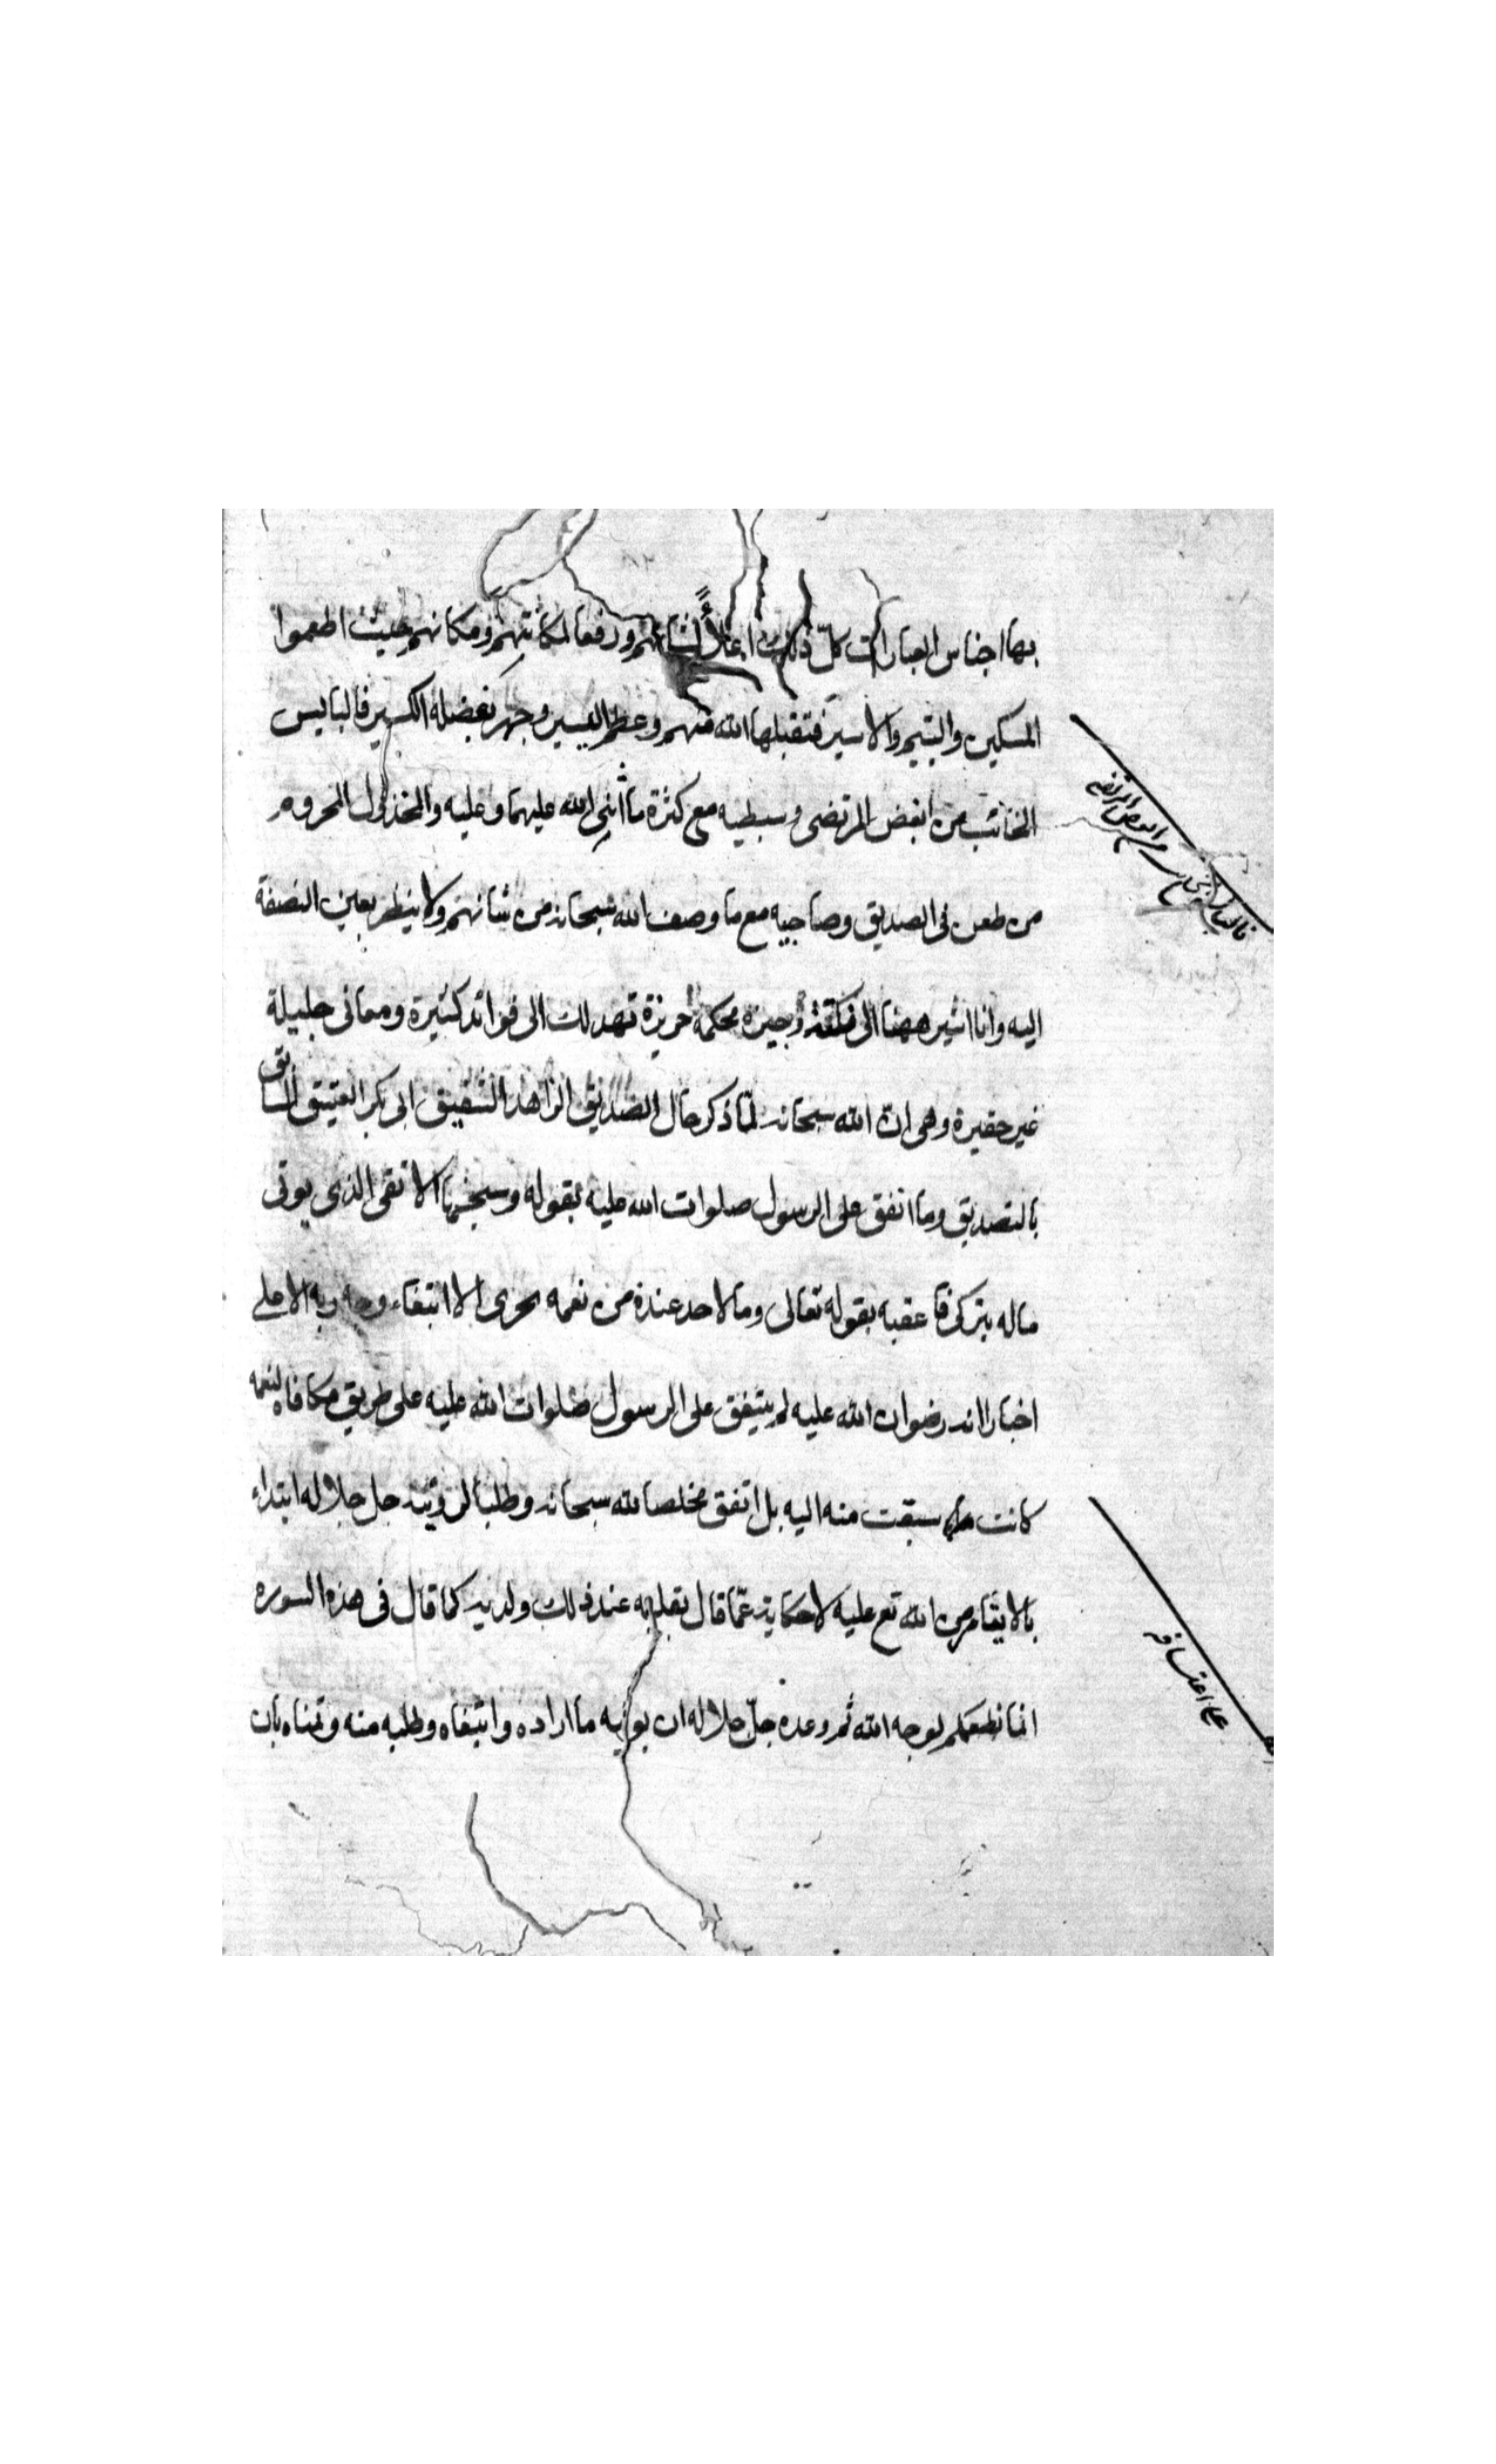 بها اجناس العبارات كلّ ذلك اعلاءً لشانهم ورفعا لمكانتهم ومكانهم حيث اطعموا
المسكين واليتيم والاسير فتقبلها الله منهم وعظم اليسير وجهر بفضله الكسير فالبايس
الخائب من ابغض المرتضى وسبطيه مع كثرة ما اثنى الله عليهما وعليه والمخذول المحروم
من طعن فى الصديق وصاحبيه مع ما وصف الله سبحانه من شانهم ولا ينظر بعين النصفة
اليه وانا اشير ههنا الى نكتة وجيزة محكمة حريزة تهد لك الى فوائد كثيرة ومعانى جليلة
غير حقيرة وهى ان الله سبحانه لمّا ذكر حال الصديق الزاهد الشفيق ابى بكر العتيق السابق
بالتصديق وما انفق على الرسول صلوات الله عليه بقوله وسيجنبها الاتقى الذى يوتى
ماله يتزكى فاعقبه بقوله تعالى وما لاحد عنده من نعمه تجزى الا ابتغاء وجه ربه الاعلى
اخبارا انه رضوان الله عليه لم يتفق على الرسول صلوات الله عليه على طريق مكافاه لنعمه
كانت سبقت منه اليه بل اتفق مخلصا لله سبحانه وطلبا لرؤيته جل جلاله ابتداء
بالايتاء من الله تع عليه لا حكاية عمّا قال بقلبه عند ذلك ولديه كما قال فى هذه السوره
انما نطعمكم لوجه الله ثم وعده جلّ جلاله ان يوتيه ما اراده وابتغاه وطلبه منه وتمناه بان
من ابغض المرتضى